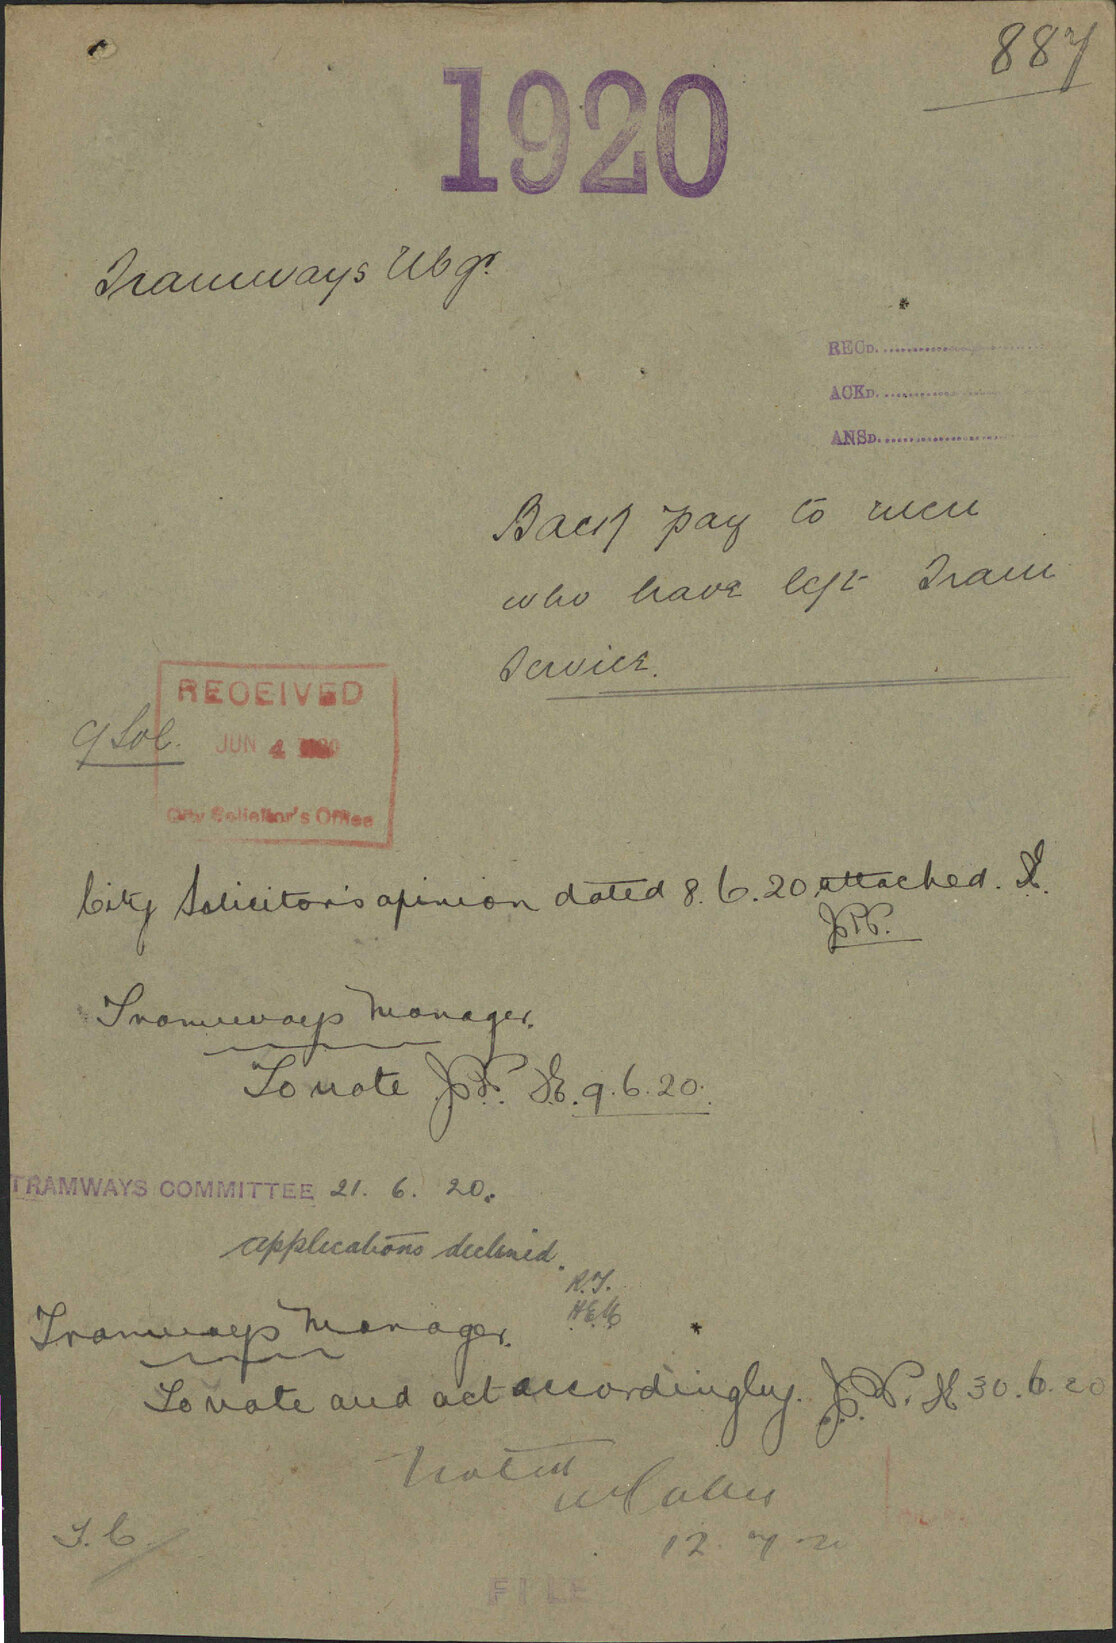 887
1920
Tramways Mgr.
RECD.
ACKD.
ANSD.
Back pay to men
who have left Tram
Service.
RECEIVED
JUN 4 1920
City Solicitor's Office
C/Sol.
City Solicitor's opinion dated 8.6.20 attached.
Tramways Manager.
To note 9.6.20.
TRAMWAYS COMMITTEE 21. 6. 20.
applications declined.
R.T.
Tramways Manager.
To note and act accordingly. 30.6.20
Noted
12 7 20
T.C
FILE